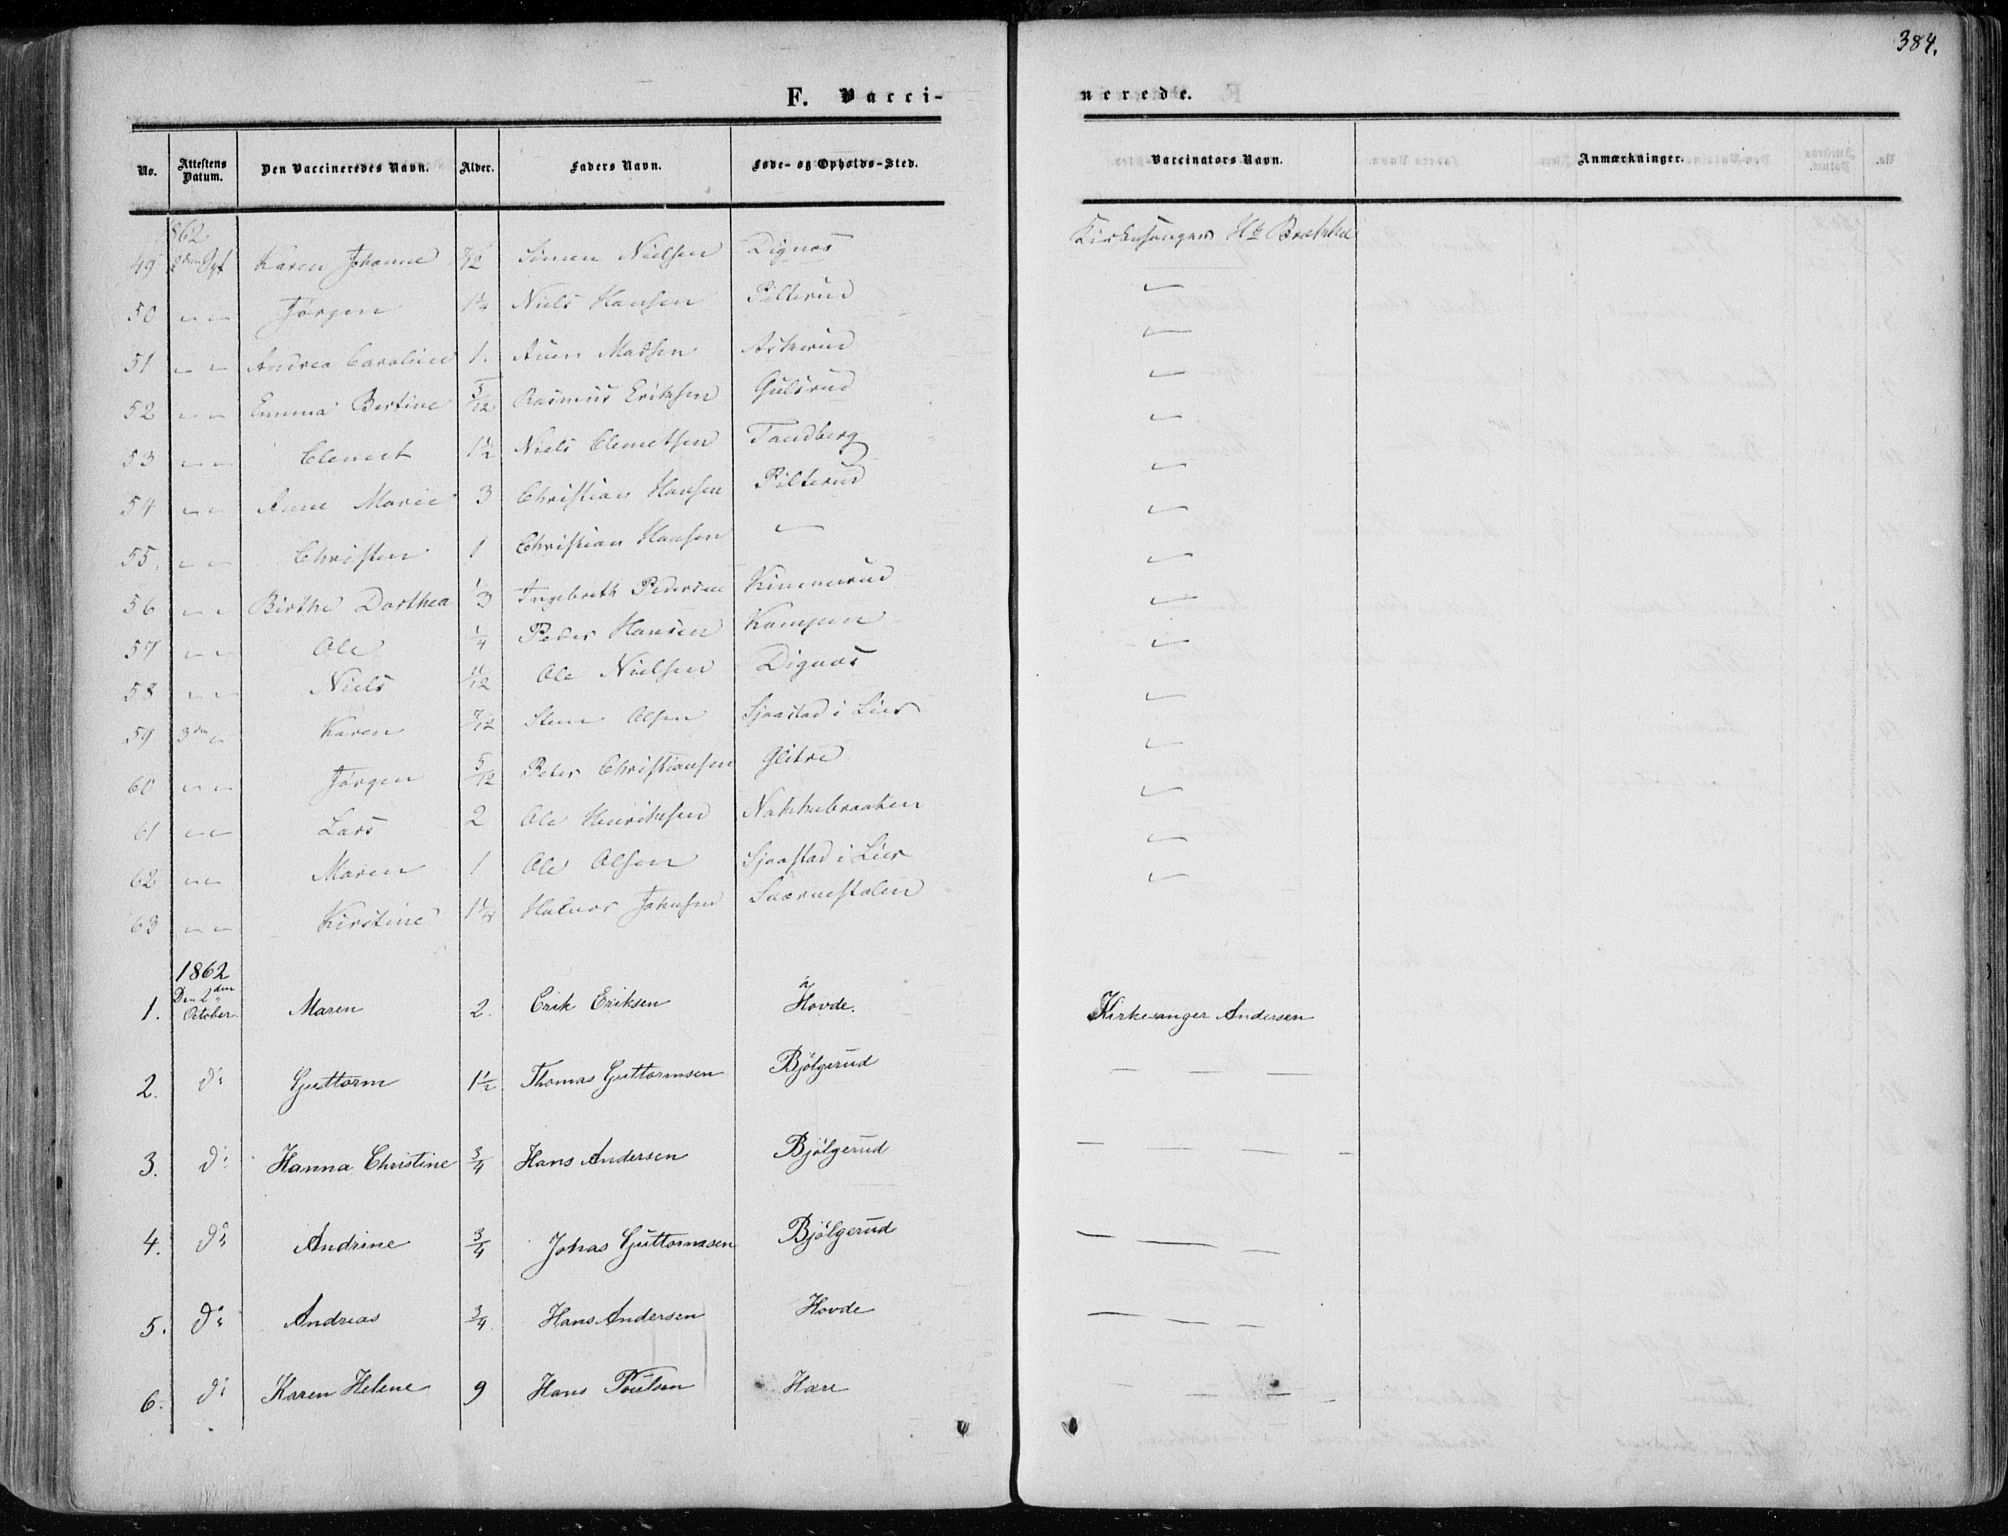 384.
F. Vacci-
nerede.
No. Attestens Datum. Den Vaccineredes Navn. Alder. Faders Navn. Føde- og Opholds-Sted. Vaccinators Navn. Anmærkninger.
862
49 2den Karen Johanne 7/12 Simen Nielsen Dignæs Kirkesanger Brække
50 " " Jørgen 1¼ Niels Hansen Pilterud "
51 " " Andrea Caroline 1. Auen Madsen Askerud "
52 " " Emma Bertine 5/12 Rasmus Eriksen Gulsrud "
53 " " Clemet 1½ Niels Clemetsen Tandberg "
54 " " Anne Marie 3 Christian Hansen Pilterud "
55. " " Christen 1 Christian Hansen " "
56 " " Birthe Dorthea 1/3 Ingebreth Pedersen Kimmerud "
57 " " Ole ¼ Peder Hansen Kampen "
58 " " Niels 11/12 Ole Nielsen Dignæs "
59 3die " Karen 7/12 Steen Olsen Sjaastad i Lier "
60 " " Jørgen 5/12 Peter Christiansen Glitre "
61 " " Lars 2 Ole Henriksen Nakkebraaten "
62 " " Maren 1 Ole Olsen Sjaastad i Lier "
63 " " Kirstine 1¼ Halvor Johnsen Sværnestolen "
1862
1. Den 2den October Maren 2. Erik Eriksen Hovde. Kirkesanger Andersen
2. do Guttorm 1½ Thomas Guttormsen Bjölgerud — — —
3. do Hanna Christine 3/4 Hans Andersen Bjölgerud — — —
4. do Andrine 3/4 Johas Guttormsen Bjölgerud — — —
5. do Andreas 3/4 Hans Andersen Hovde — — —
6. do Karen Helene 9 Hans Poulsen Hære — — —